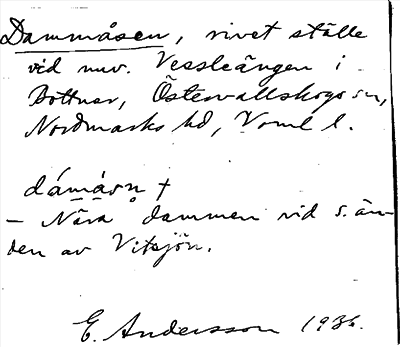 Dammåsen, rivet ställe
vid nuv. Vessleängen i
Bottnar, Östervallskogs sn,
Nordmarks hd, Vrml l.
dámåsn †
– Nära dammen vid s. än-
den av Vitsjön.
E. Andersson 1936.